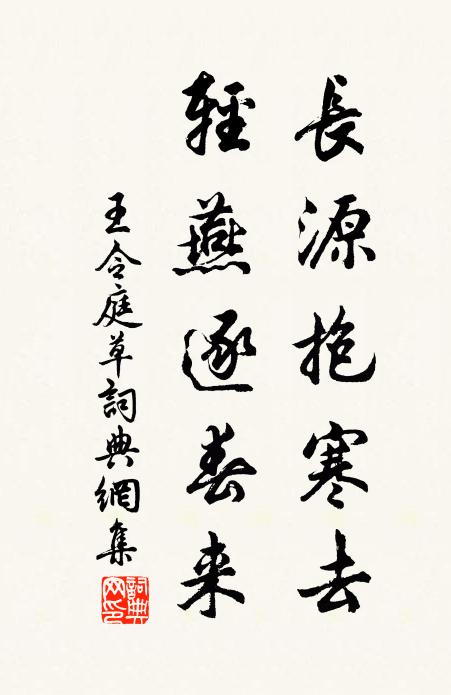 長源抱寒去
輕燕逐春来
王令庭草詞典網集
詞典网印